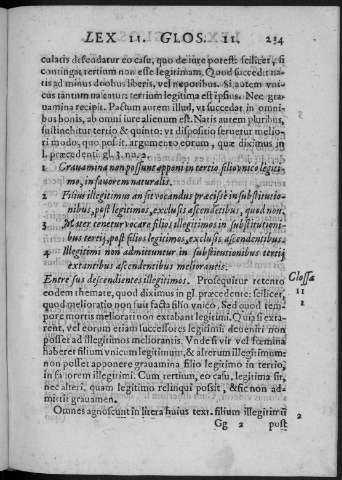 LEX II. GLOS. II. 234
culatis defendatur eo casu, quo de iure potest: scilicet, si
contingat tertium non esse legitimam. Quod succedit na-
tis ad minus duobus liberis, vel nepotibus. Si autem vnicus
tantum natus sit, tertium legitima est ipsius. Nec gra-
uamina recipit. Pactum aurem illud, vt succedat in omni-
bus bonis, ab omni iure alienum est. Natis autem pluribus,
sustinebitur tertio & quinto: vt dispositio seruetur melio-
ri modo, quo possit. argumento eorum, quæ diximus in
l. præcedenti. gl. 3. nu. 2.
1 Grauamina non possunt apponi in tertio filio vnico legiti-
mo, in fauorem naturalis.
2 Filius illegitimus an sit vocandus præcisè in substitutio-
nibus, post legitimos, exclusis ascendētibus, quod non.
3 Mater tenetur vocare filios illegitimos in substitutioni-
bus tertij, post filios legitimos, exclusis ascendentibus.
4 Illegitimi non admittuntur in substitutionibus tertij
extantibus ascendentibus meliorantis.
Entre sus descendientes illegitimos. Prosequitur retento
Glossa
eodem themate, quod diximus in gl. præcedente: scilicet,
11
quod melioratio non fuit facta filio vnico. Sed quod tem-
1
pore mortis meliorati non extabant legitimi. Quia si exta-
rent, vel eorum etiam successores legitimi: deueniri non
posset ad illegitimos meliorantis. Vnde si vir vel fœmina
haberet filium vnicum legitimum, & alterum illegitimum:
non posset apponere grauamina filio legitimo in tertio,
in fauorem illegitimi. Cum tertium, eo casu, legitima sit,
nec alteri, quam legitimo relinqui possit, & sic non ad-
mittit grauamen.
Omnes agnoscunt in litera huius text. filium illegitimū
2
Gg 2 post